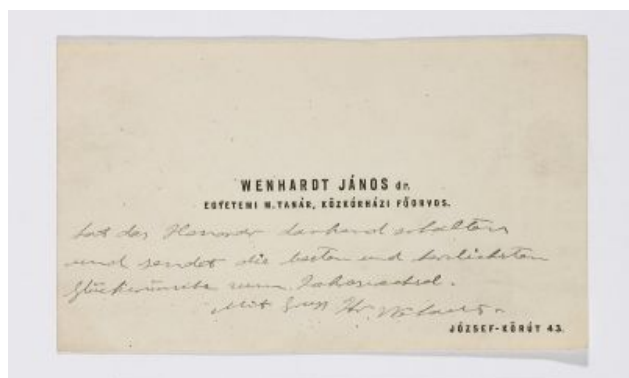 WENHARDT JÁNOS dr.
EGYETEMI M. TANÁR, KÖZKÓRHÁZI FŐORVOS.
hat das Honorar dankend erhalten
und sendet die besten und herzlichsten
Glückwünsche zum Jahreswechsel.
Mit Gruss
JÓZSEF-KÖRÚT 43.